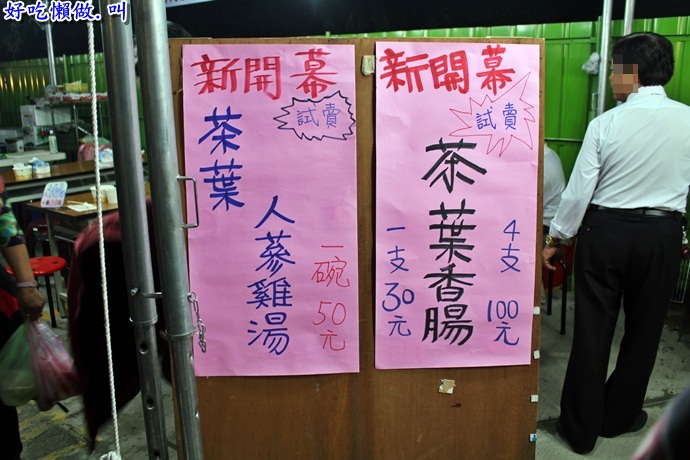 好吃懶做.叫
新開幕
試賣
茶葉
人蔘雞湯
一碗50元
新開幕
試賣
茶葉香腸
一支30元
4支100元